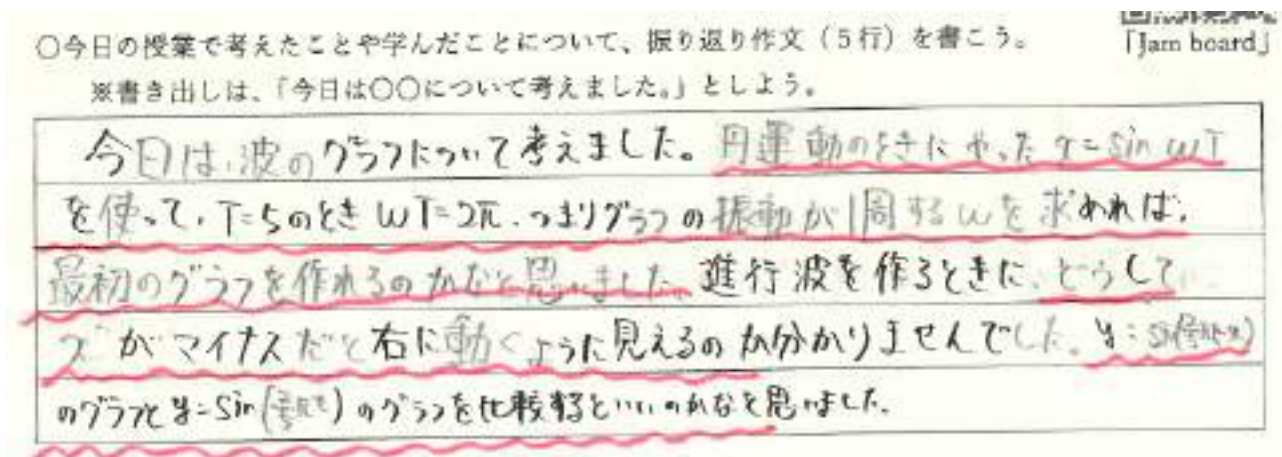 ○今日の授業で考えたことや学んだことについて、振り返り作文（5行）を書こう。
「Jam board」
※書き出しは、「今日は○○について考えました。」としよう。
今日は、波のグラフについて考えました。円運動のときにやった y=sin ωT
を使って、T=5のとき ωT=2π、つまりグラフの振動が1周するωを求めれば、
最初のグラフを作れるのかなと思いました。進行波を作るときに、どうして
xがマイナスだと右に動くように見えるのか分かりませんでした。y=sin
のグラフと y=sin のグラフを比較するといいのかなと思いました。